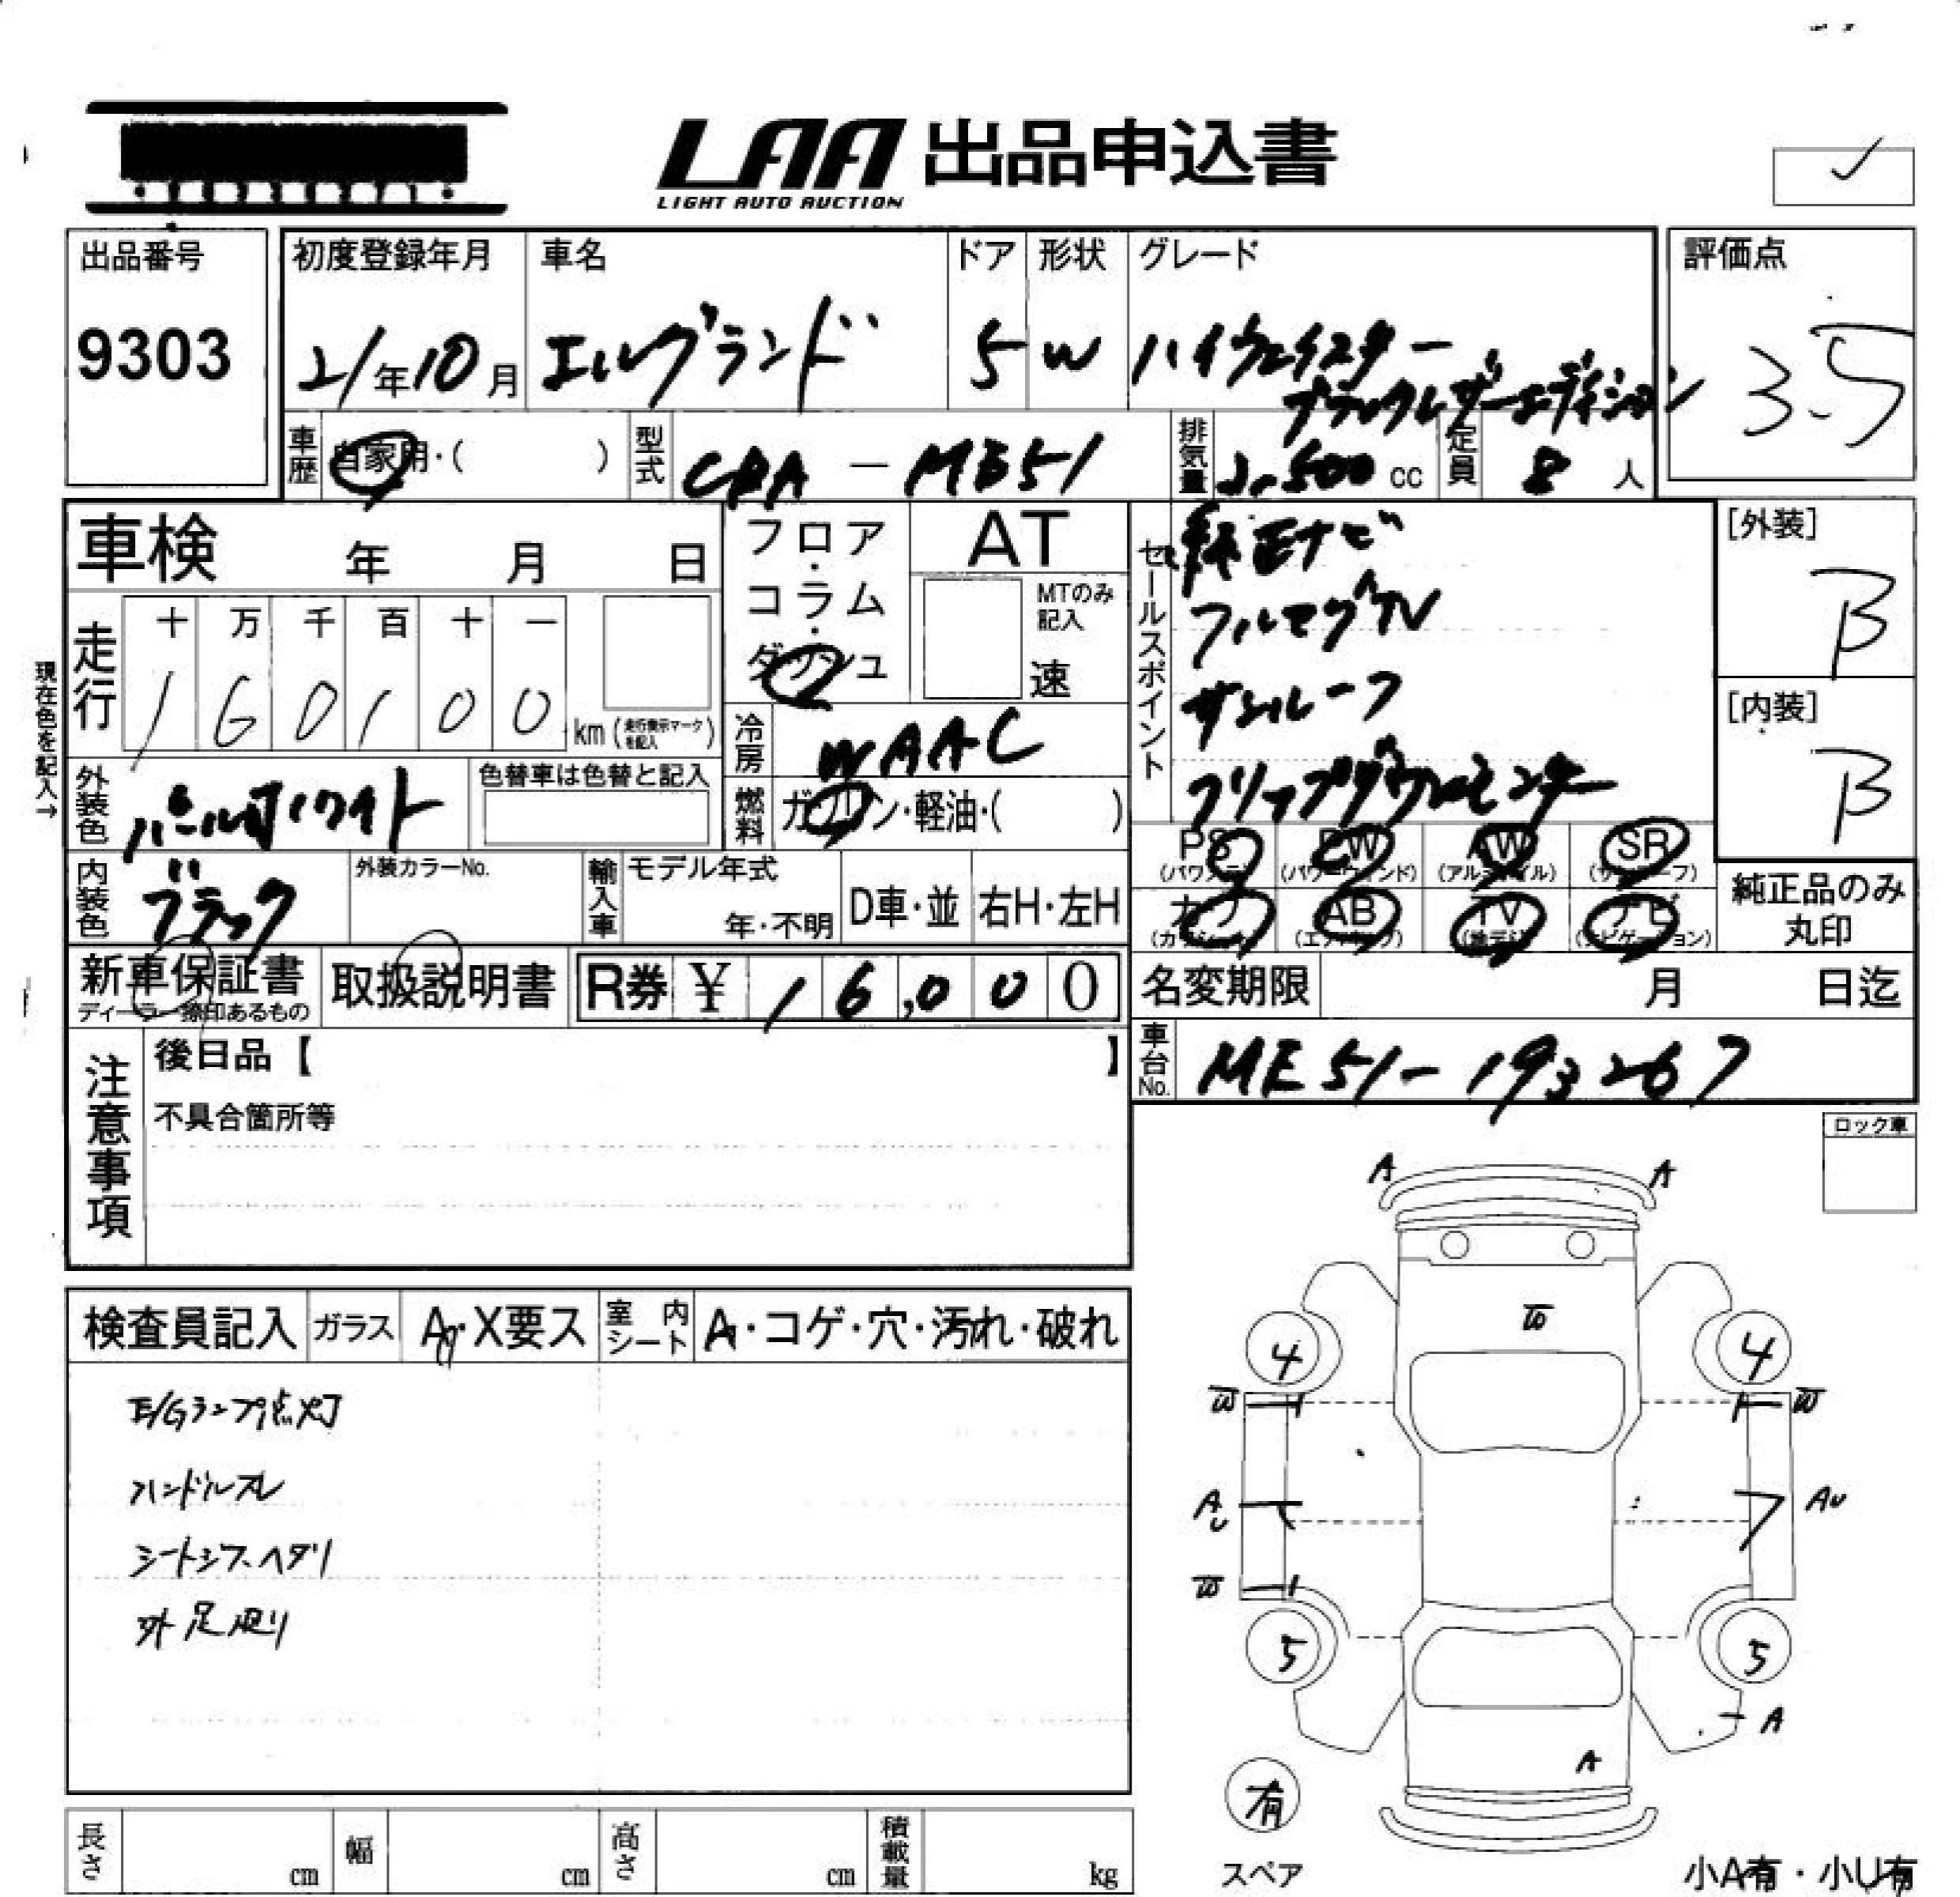 LAA 出品申込書
LIGHT AUTO AUCTION
出品番号
9303
初度登録年月
21年10月
車名
エルグランド
ドア
5
形状
W
グレード
ハイウェイスター
ブラックレザーエディション
評価点
3.5
車歴
自家用・( )
型式
CBA - ME51
排気量
2,500 cc
定員
8 人
車検 年 月 日
フロア・コラム・ダッシュ
AT
MTのみ記入
速
セールスポイント
純正ナビ
フルセグTV
サンルーフ
フリップダウンモニター
[外装]
B
[内装]
B
現在色を記入→
走行
十 万 千 百 十 一
1 6 0 1 0 0 km (走行表示マークを記入)
冷房
WAAC
外装色
パールホワイト
色替車は色替と記入
燃料
ガソリン・軽油・( )
PS (パワステ)
PW (パワーウィンド)
AW (アルミホイル)
SR (サンルーフ)
カワ (カワシート)
AB (エアバッグ)
TV (地デジ)
ナビ (ナビゲーション)
純正品のみ丸印
内装色
ブラック
外装カラーNo.
輸入車
モデル年式
年・不明
D車・並
右H・左H
新車保証書
ディーラー捺印あるもの
取扱説明書
R券 ¥ 16,000
名変期限 月 日迄
車台No.
ME51-193267
注意事項
後日品【 】
不具合箇所等
ロック車
検査員記入
ガラス
A・X要ス
室内シート
A・コゲ・穴・汚れ・破れ
E/Gランプ点灯
ハンドルスレ
シートシワ、ヘタリ
外 足廻り
A A
W
4 4
W W
A
U
AU
W
5 5
A
A
有
スペア
小A有・小U有
長さ cm
幅 cm
高さ cm
積載量 kg